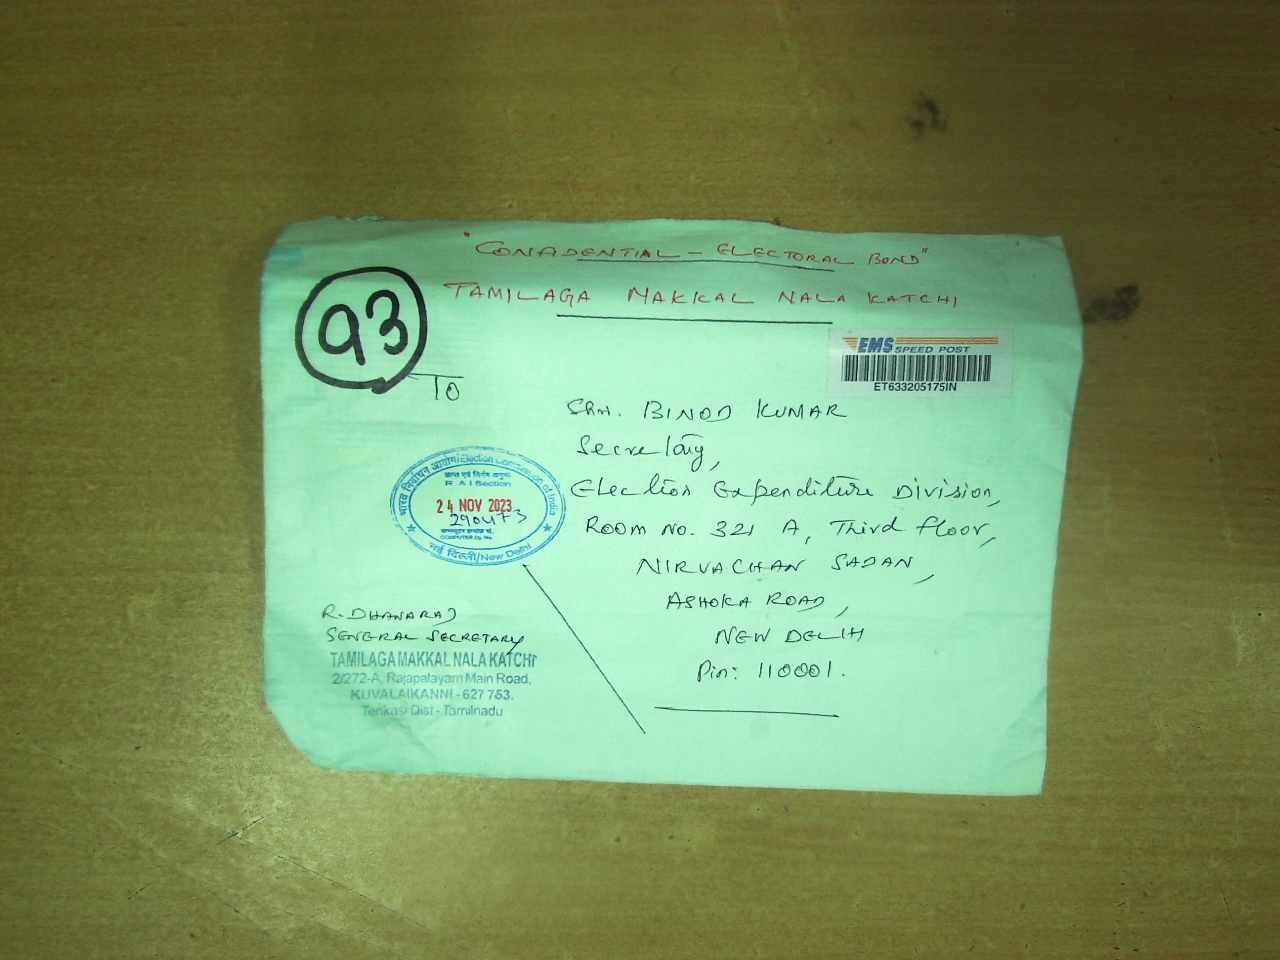 "CONFIDENTIAL - ELECTORAL BOND"
TAMILAGA MAKKAL NALA KATCHI
93
EMS SPEED POST
ET633205175IN
To
SHRI. BINOD KUMAR
Secretary,
Election Expenditure Division,
Room No. 321 A, Third Floor,
NIRVACHAN SADAN,
ASHOKA ROAD,
NEW DELHI
Pin: 110001.
भारत निर्वाचन आयोग/Election Commission of India
R & I Section
24 NOV 2023
290473
COMPUTER Dy. No.
नई दिल्ली/New Delhi
R. DHANARAJ
GENERAL SECRETARY
TAMILAGA MAKKAL NALA KATCHI
2/272-A, Rajapalayam Main Road,
KUVALAIKANNI - 627 753.
Tenkasi Dist - Tamilnadu